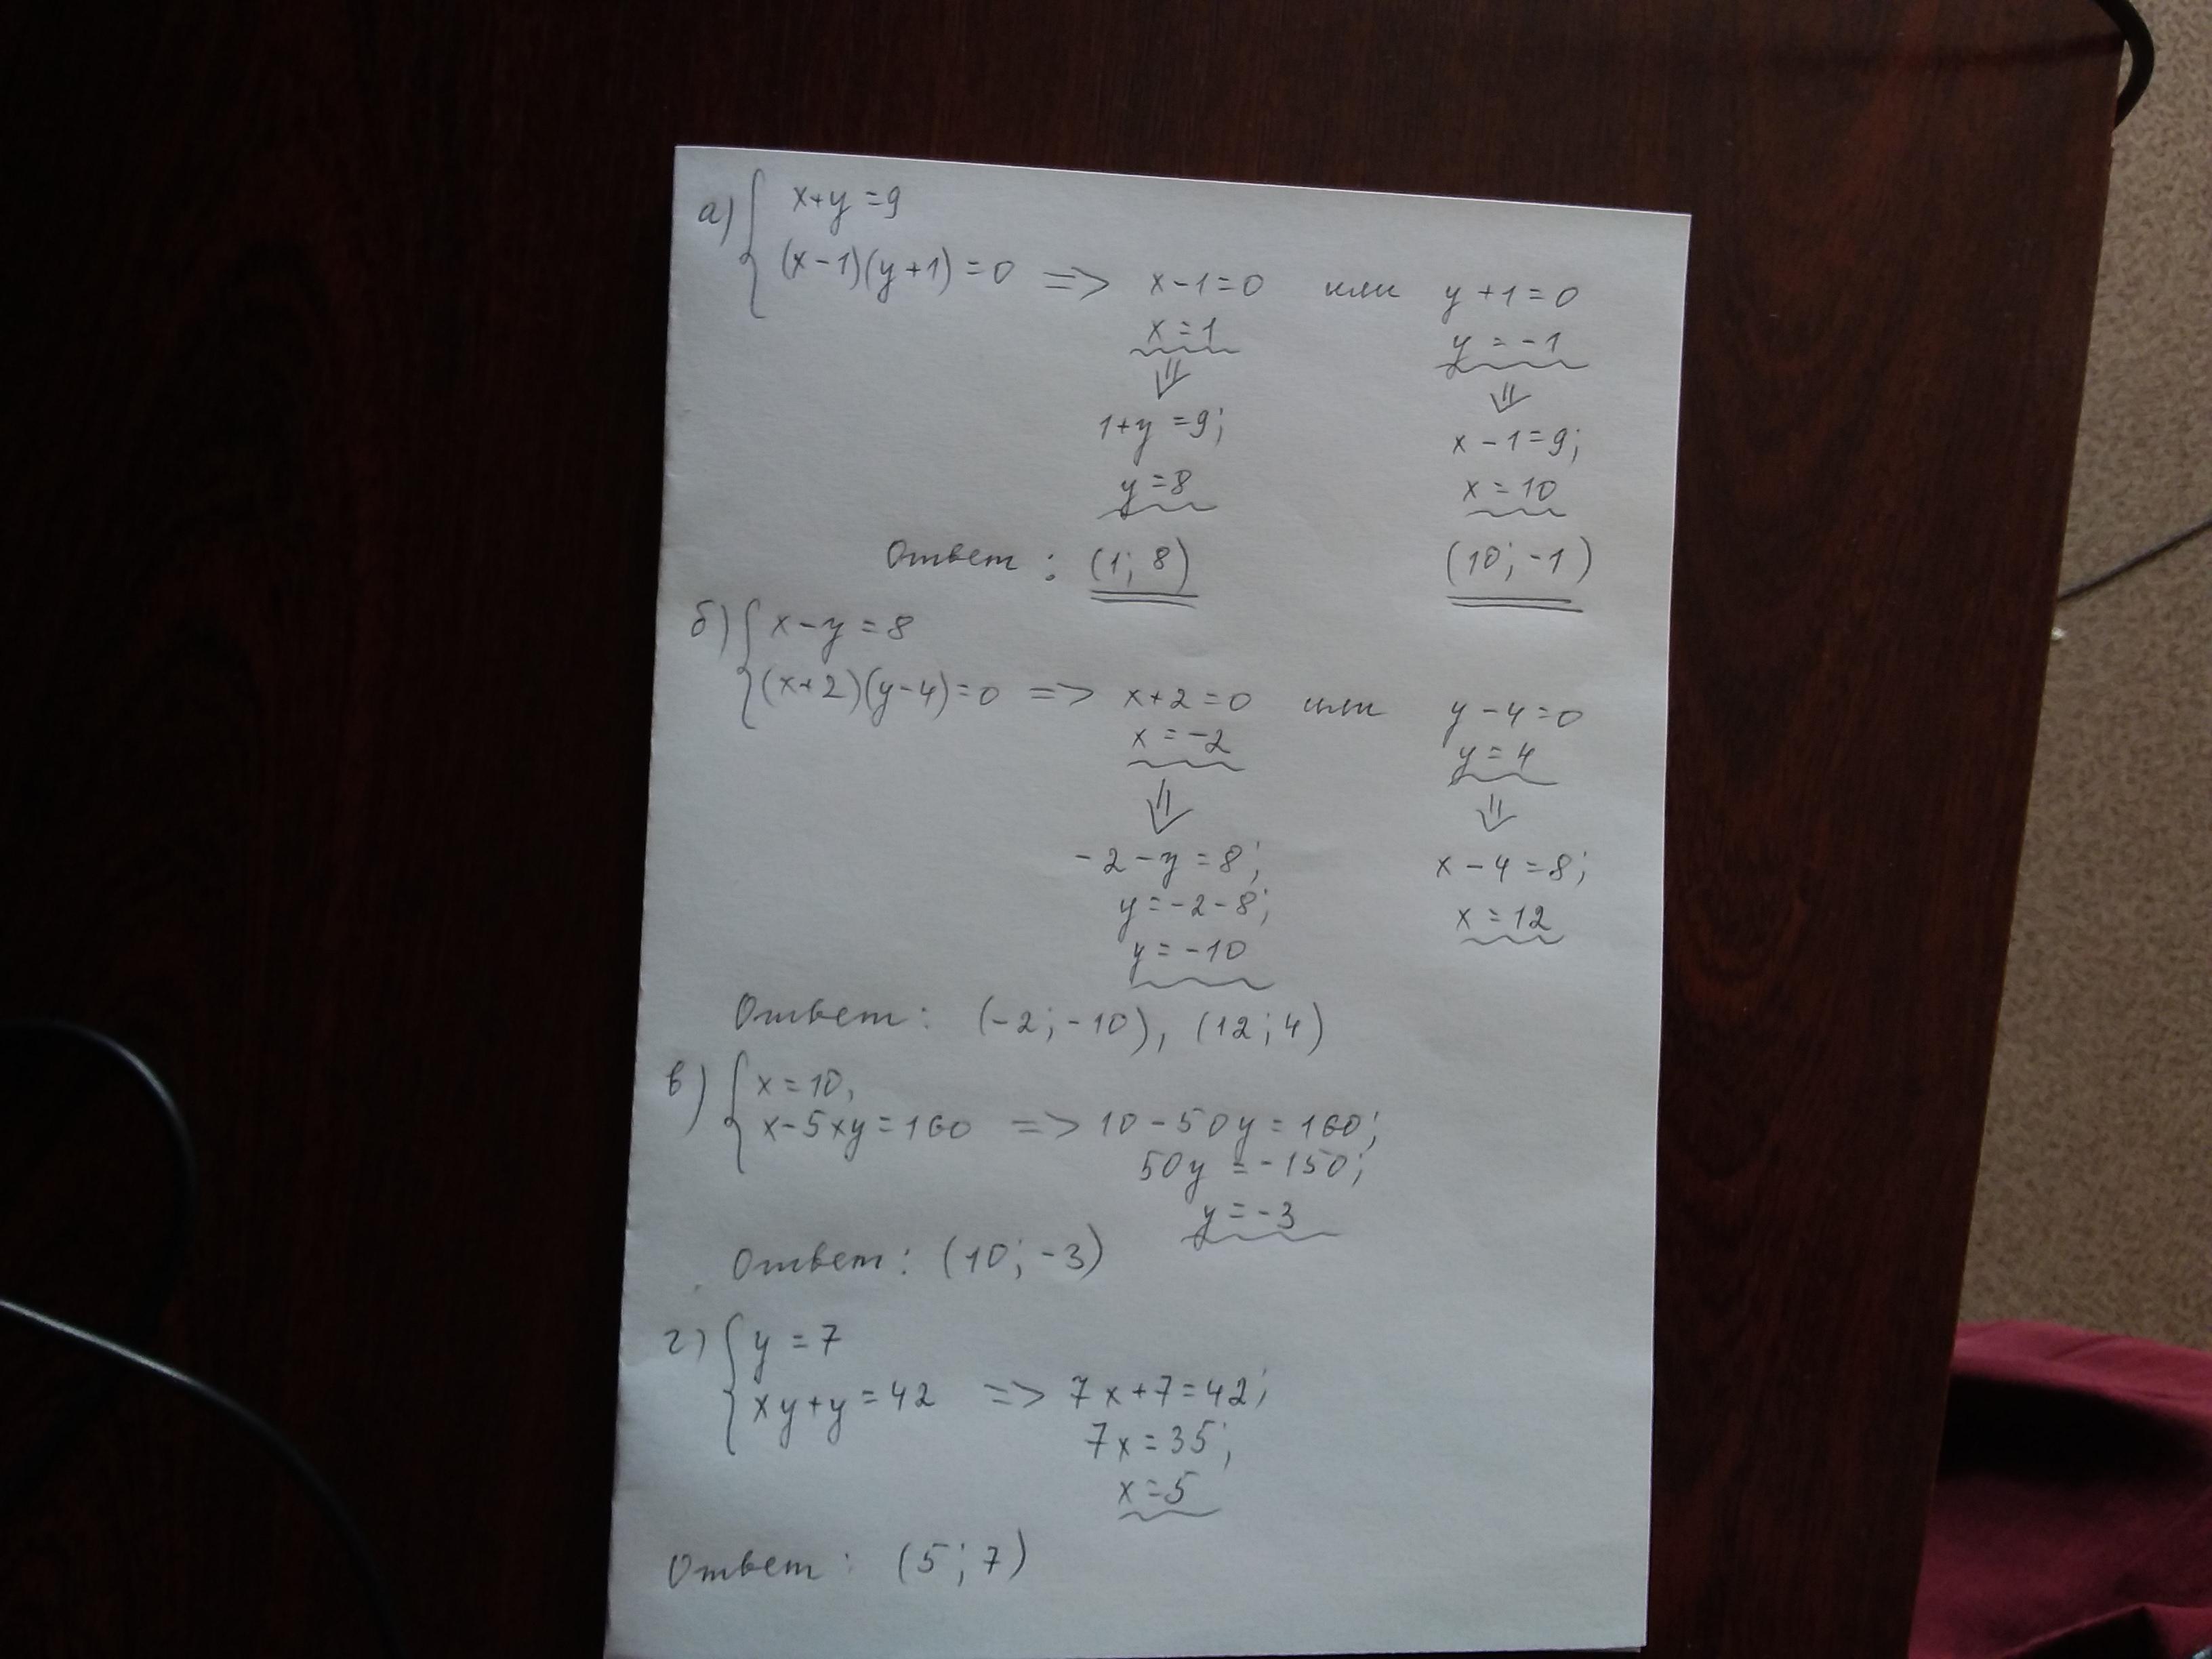 а) { x+y=9
(x-1)(y+1)=0 => x-1=0 или y+1=0
x=1 y=-1
⇓ ⇓
1+y=9; x-1=9;
y=8 x=10
Ответ: (1; 8) (10; -1)
б) { x-y=8
(x+2)(y-4)=0 => x+2=0 или y-4=0
x=-2 y=4
⇓ ⇓
-2-y=8; x-4=8;
y=-2-8; x=12
y=-10
Ответ: (-2; -10), (12; 4)
в) { x=10,
x-5xy=160 => 10-50y=160;
50y=-150;
y=-3
Ответ: (10; -3)
г) { y=7
xy+y=42 => 7x+7=42;
7x=35;
x=5
Ответ: (5; 7)